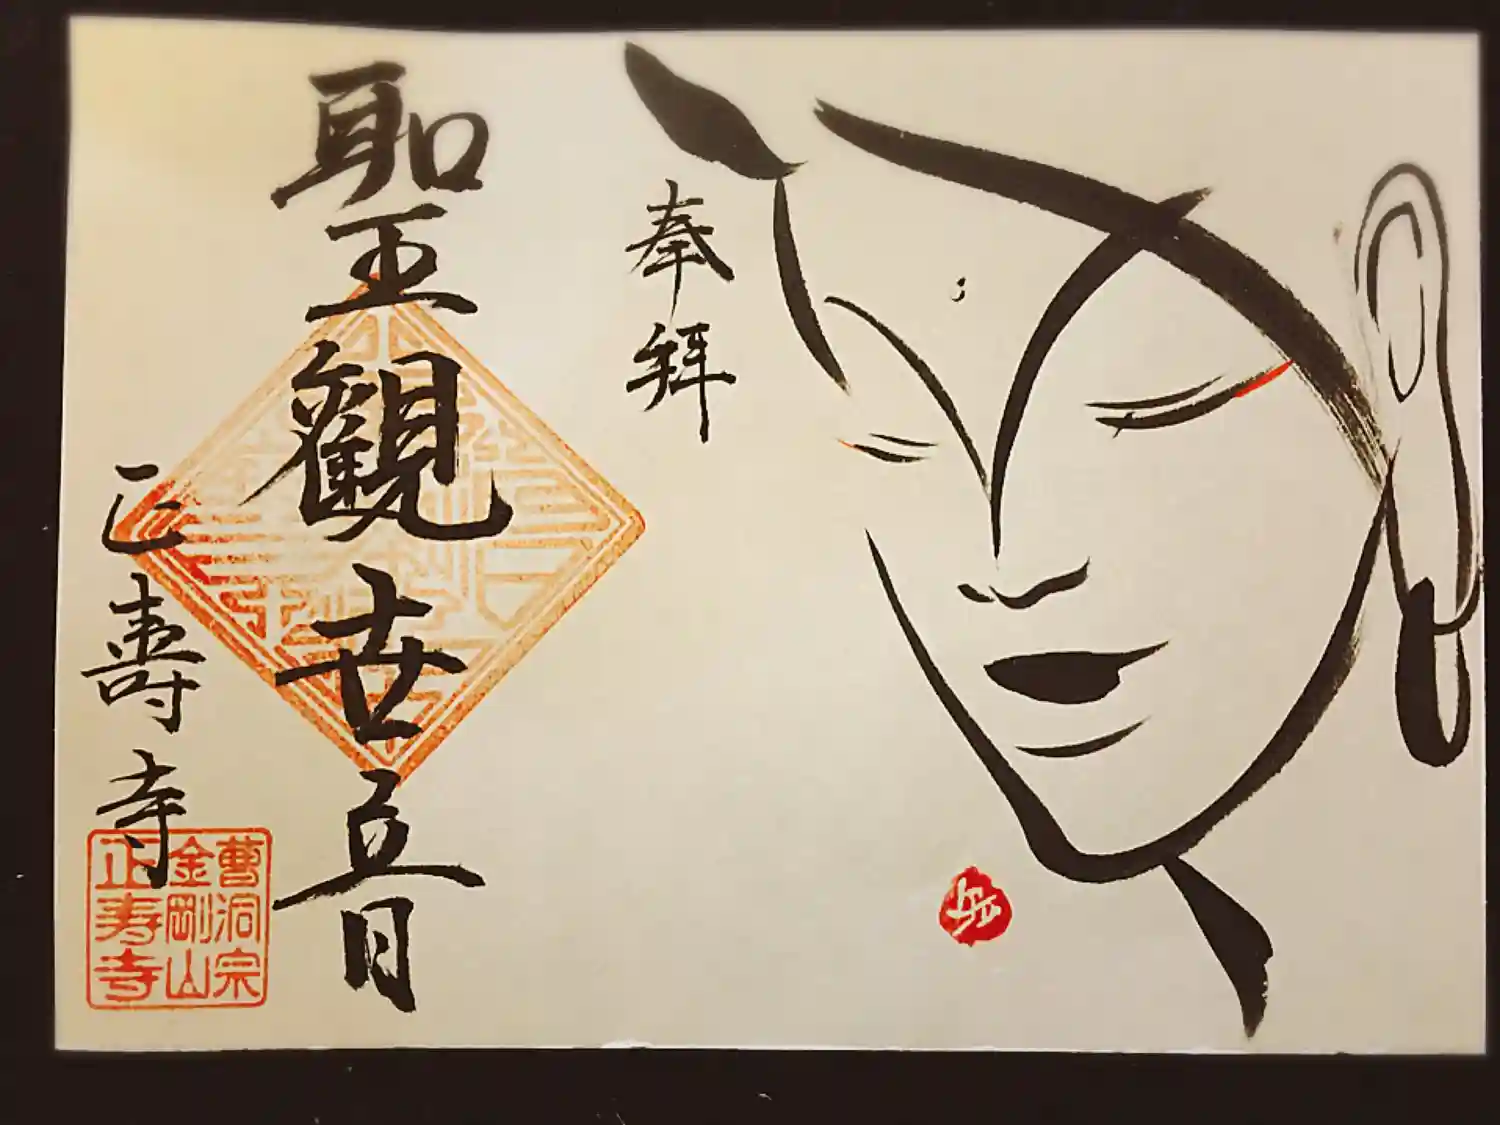 奉拜
聖觀世音
正壽寺
曹洞宗
金剛山
正寿寺